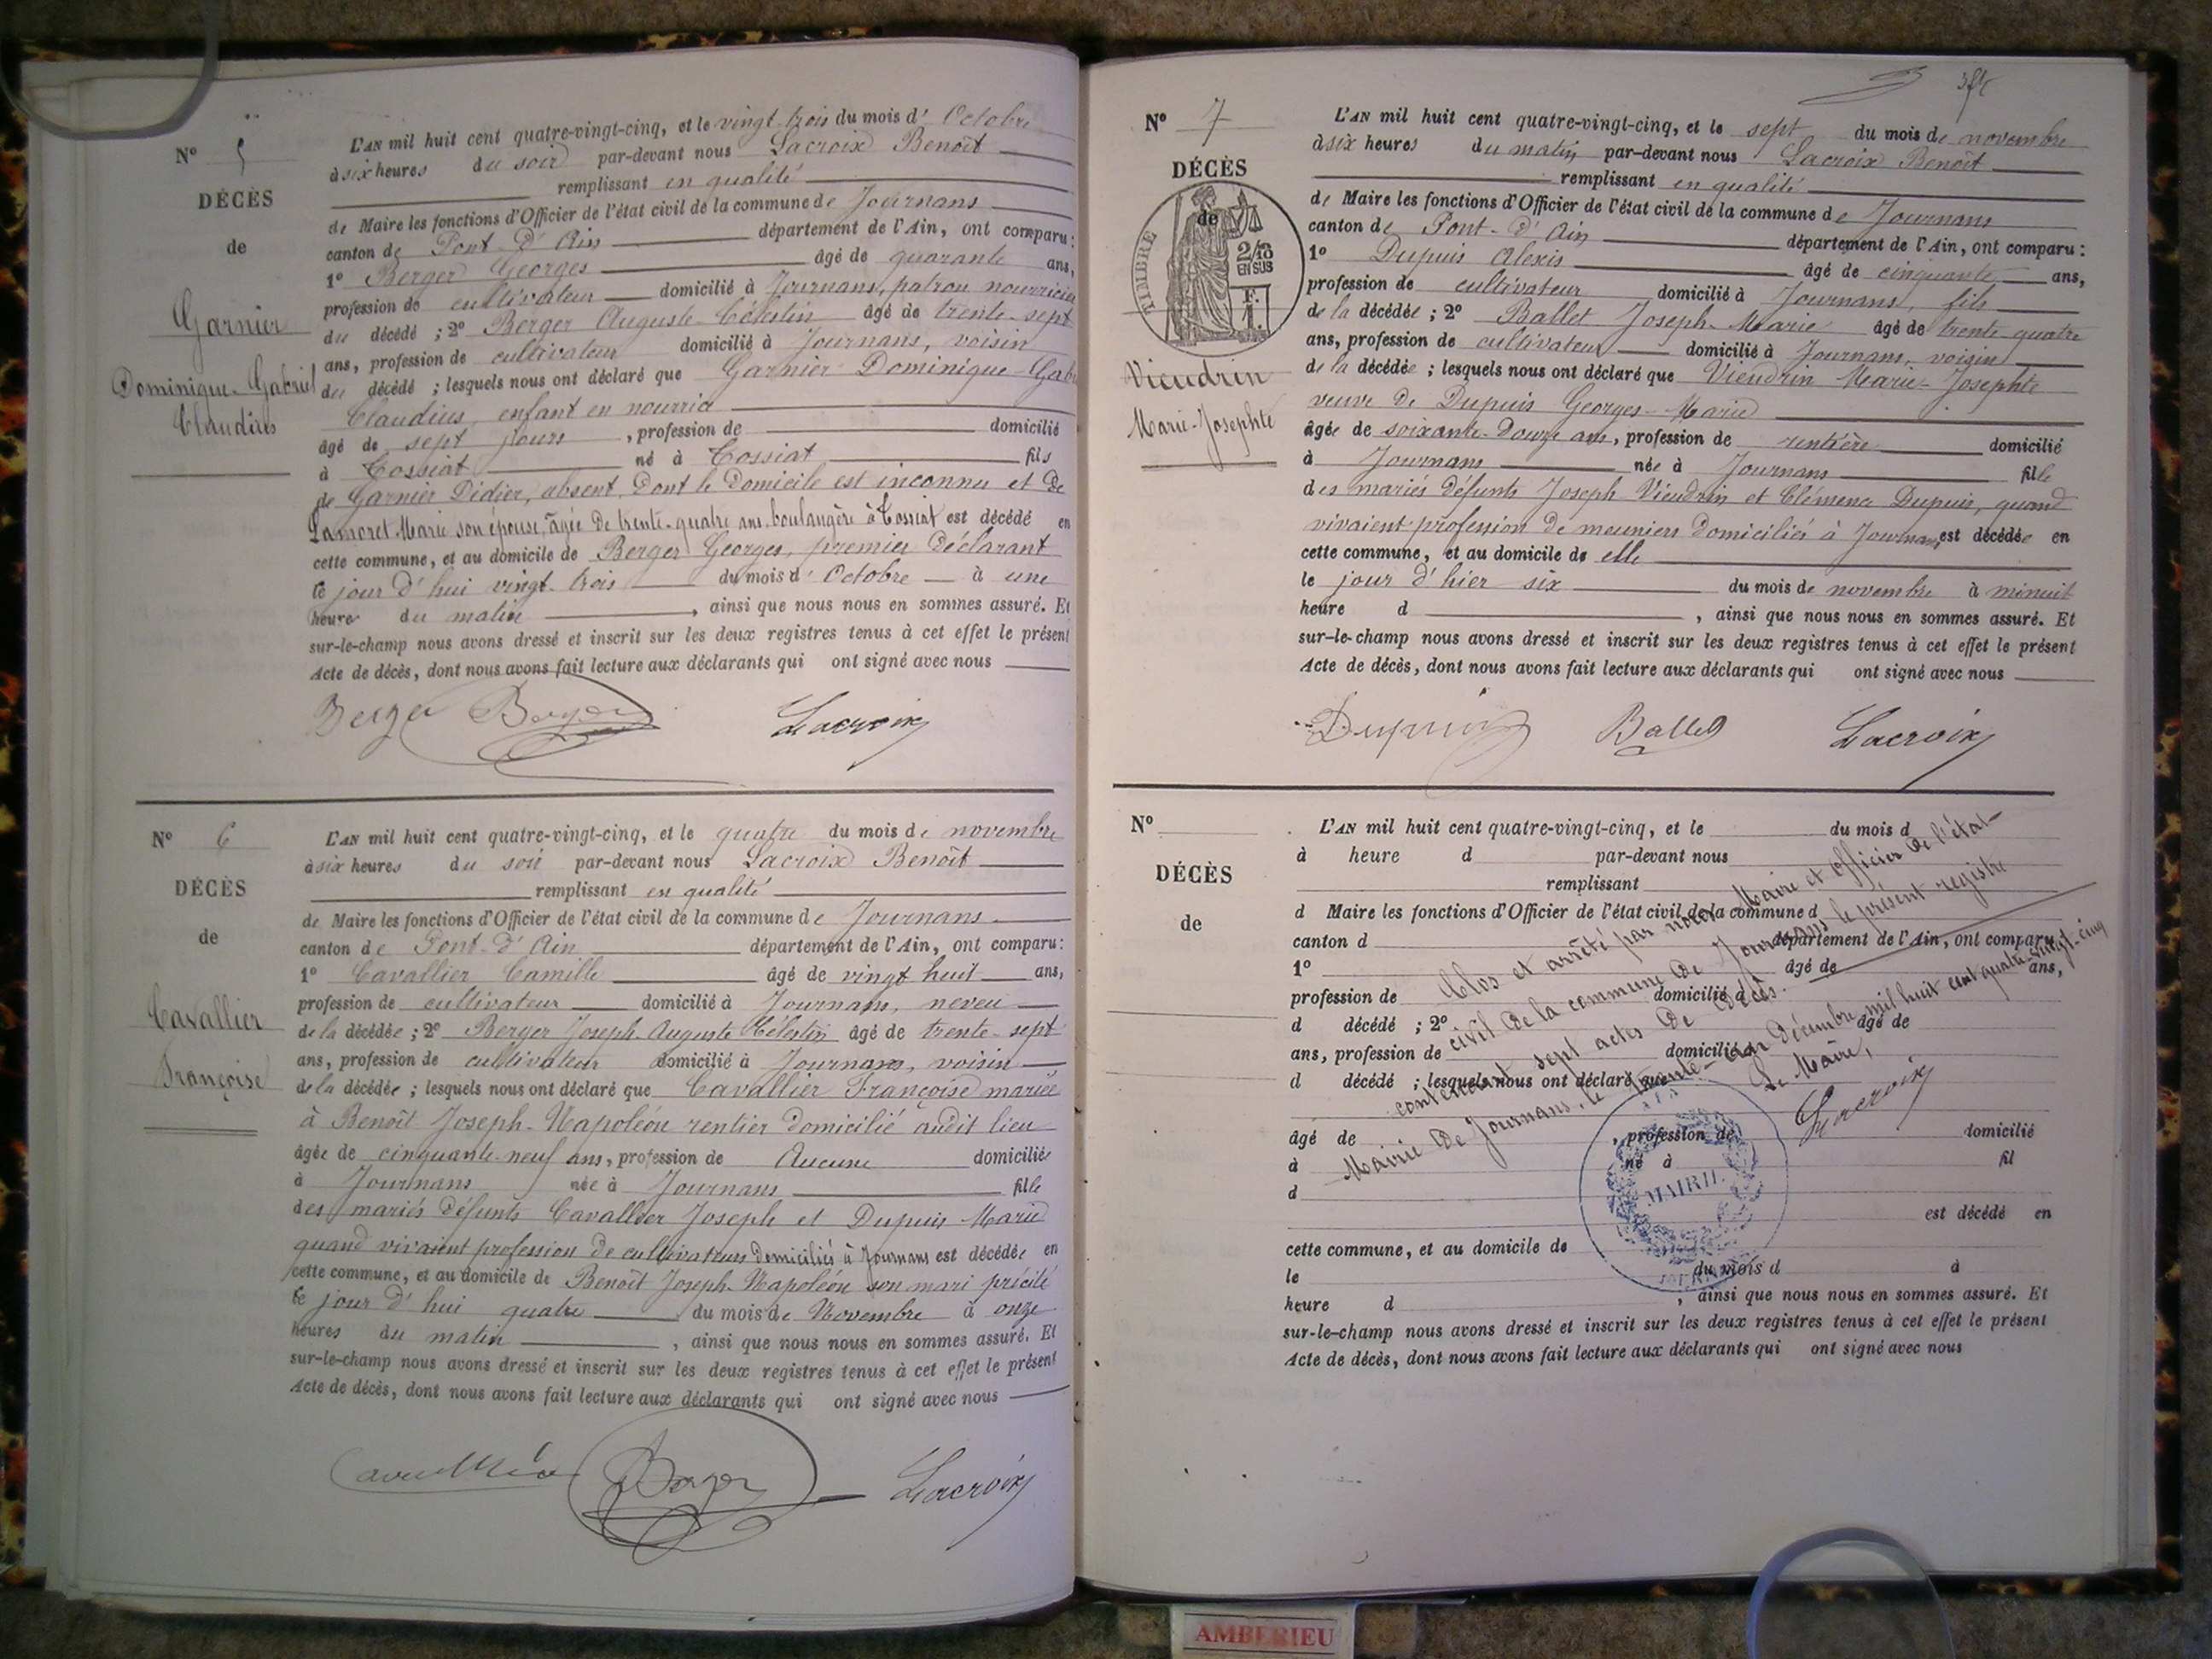 N° 5
DÉCÈS
de
Garnier
Dominique-Gabriel
Claudius
L'AN mil huit cent quatre-vingt-cinq, et le vingt-trois du mois d'Octobre
à six heures du soir par-devant nous Lacroix Benoît
remplissant en qualité
de Maire les fonctions d'Officier de l'état civil de la commune de Journans
canton de Pont-d'Ain département de l'Ain, ont comparu :
1° Berger Georges âgé de quarante ans,
profession de cultivateur domicilié à Journans, patron nourricier
du décédé ; 2° Berger Auguste-Célestin âgé de trente-sept
ans, profession de cultivateur domicilié à Journans, voisin
du décédé ; lesquels nous ont déclaré que Garnier Dominique-Gab
Claudius, enfant en nourrice
âgé de sept jours, profession de domicilié
à Tossiat né à Tossiat fils
de Garnier Didier, absent, dont le domicile est inconnu et de
Lamoret Marie son épouse, âgée de trente-quatre ans boulangère à Tossiat est décédé en
cette commune, et au domicile de Berger Georges, premier déclarant
le jour d'hui vingt-trois du mois d'Octobre à une
heure du matin, ainsi que nous nous en sommes assuré. Et
sur-le-champ nous avons dressé et inscrit sur les deux registres tenus à cet effet le présent
Acte de décès, dont nous avons fait lecture aux déclarants qui ont signé avec nous
Berger Berger Lacroix
N° 6
DÉCÈS
de
Cavallier
Françoise
L'AN mil huit cent quatre-vingt-cinq, et le quatre du mois de novembre
à six heures du soir par-devant nous Lacroix Benoît
remplissant en qualité
de Maire les fonctions d'Officier de l'état civil de la commune de Journans
canton de Pont-d'Ain département de l'Ain, ont comparu :
1° Cavallier Camille âgé de vingt huit ans,
profession de cultivateur domicilié à Journans, neveu
de la décédée ; 2° Berger Joseph-Auguste Célestin âgé de trente-sept
ans, profession de cultivateur domicilié à Journans, voisin
de la décédée ; lesquels nous ont déclaré que Cavallier Françoise mariée
à Benoît Joseph-Napoléon rentier domicilié audit lieu
âgée de cinquante-neuf ans, profession de Aucune domiciliée
à Journans née à Journans fille
des mariés défunts Cavallier Joseph et Dupuis Marie
quand vivaient profession de cultivateurs domiciliés à Journans est décédée en
cette commune, et au domicile de Benoît Joseph-Napoléon son mari précité
le jour d'hui quatre du mois de Novembre à onze
heures du matin, ainsi que nous nous en sommes assuré. Et
sur-le-champ nous avons dressé et inscrit sur les deux registres tenus à cet effet le présent
Acte de décès, dont nous avons fait lecture aux déclarants qui ont signé avec nous
Cavallier Berger Lacroix
N° 7
DÉCÈS
de
TIMBRE
2/10
EN SUS
F.
1.
Vieudrin
Marie-Josephte
L'AN mil huit cent quatre-vingt-cinq, et le sept du mois de novembre
à six heures du matin par-devant nous Lacroix Benoît
remplissant en qualité
de Maire les fonctions d'Officier de l'état civil de la commune de Journans
canton de Pont-d'Ain département de l'Ain, ont comparu :
1° Dupuis Alexis âgé de cinquante ans,
profession de cultivateur domicilié à Journans, fils
de la décédée ; 2° Ballet Joseph-Marie âgé de trente quatre
ans, profession de cultivateur domicilié à Journans, voisin
de la décédée ; lesquels nous ont déclaré que Vieudrin Marie-Josephte
veuve de Dupuis Georges-Marie
âgée de soixante-douze ans, profession de rentière domicilié
à Journans née à Journans fille
des mariés défunts Joseph Vieudrin et Clémence Dupuis, quand
vivaient profession de meuniers domiciliés à Journans, est décédée en
cette commune, et au domicile de elle
le jour d'hier six du mois de novembre à minuit
heure d , ainsi que nous nous en sommes assuré. Et
sur-le-champ nous avons dressé et inscrit sur les deux registres tenus à cet effet le présent
Acte de décès, dont nous avons fait lecture aux déclarants qui ont signé avec nous
Dupuis Ballet Lacroix
N°
DÉCÈS
de
L'AN mil huit cent quatre-vingt-cinq, et le du mois d
à heure d par-devant nous
remplissant
d Maire les fonctions d'Officier de l'état civil de la commune d
canton d département de l'Ain, ont comparu :
1° âgé de ans,
profession de domicilié à
d décédé ; 2° âgé de
ans, profession de domicilié à
d décédé ; lesquels nous ont déclaré que
âgé de , profession de domicilié
à né à fil
d
est décédé en
cette commune, et au domicile de
le du mois d à
heure d , ainsi que nous nous en sommes assuré. Et
sur-le-champ nous avons dressé et inscrit sur les deux registres tenus à cet effet le présent
Acte de décès, dont nous avons fait lecture aux déclarants qui ont signé avec nous
Clos et arrêté par nous Maire et Officier de l'état
civil de la commune de Journans le présent registre
contenant sept actes de décès.
Mairie de Journans, le trente-un Décembre mil huit cent quatre-vingt-cinq
Le Maire,
Lacroix
MAIRIE
AMBERIEU